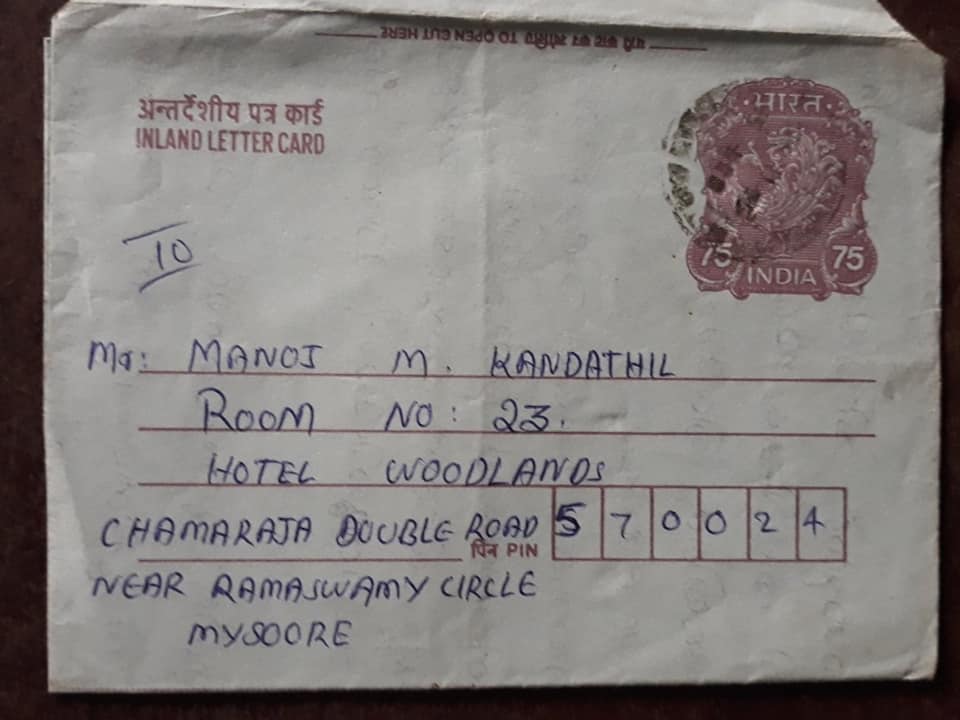 यहाँ काट कर खोलिये TO OPEN CUT HERE
अन्तर्देशीय पत्र कार्ड
INLAND LETTER CARD
भारत
75 75
INDIA
10
Mr: MANOJ M. KANDATHIL
ROOM NO: 23.
HOTEL WOODLANDS
CHAMARAJA DOUBLE ROAD
पिन PIN
570024
NEAR RAMASWAMY CIRCLE
MYSOORE